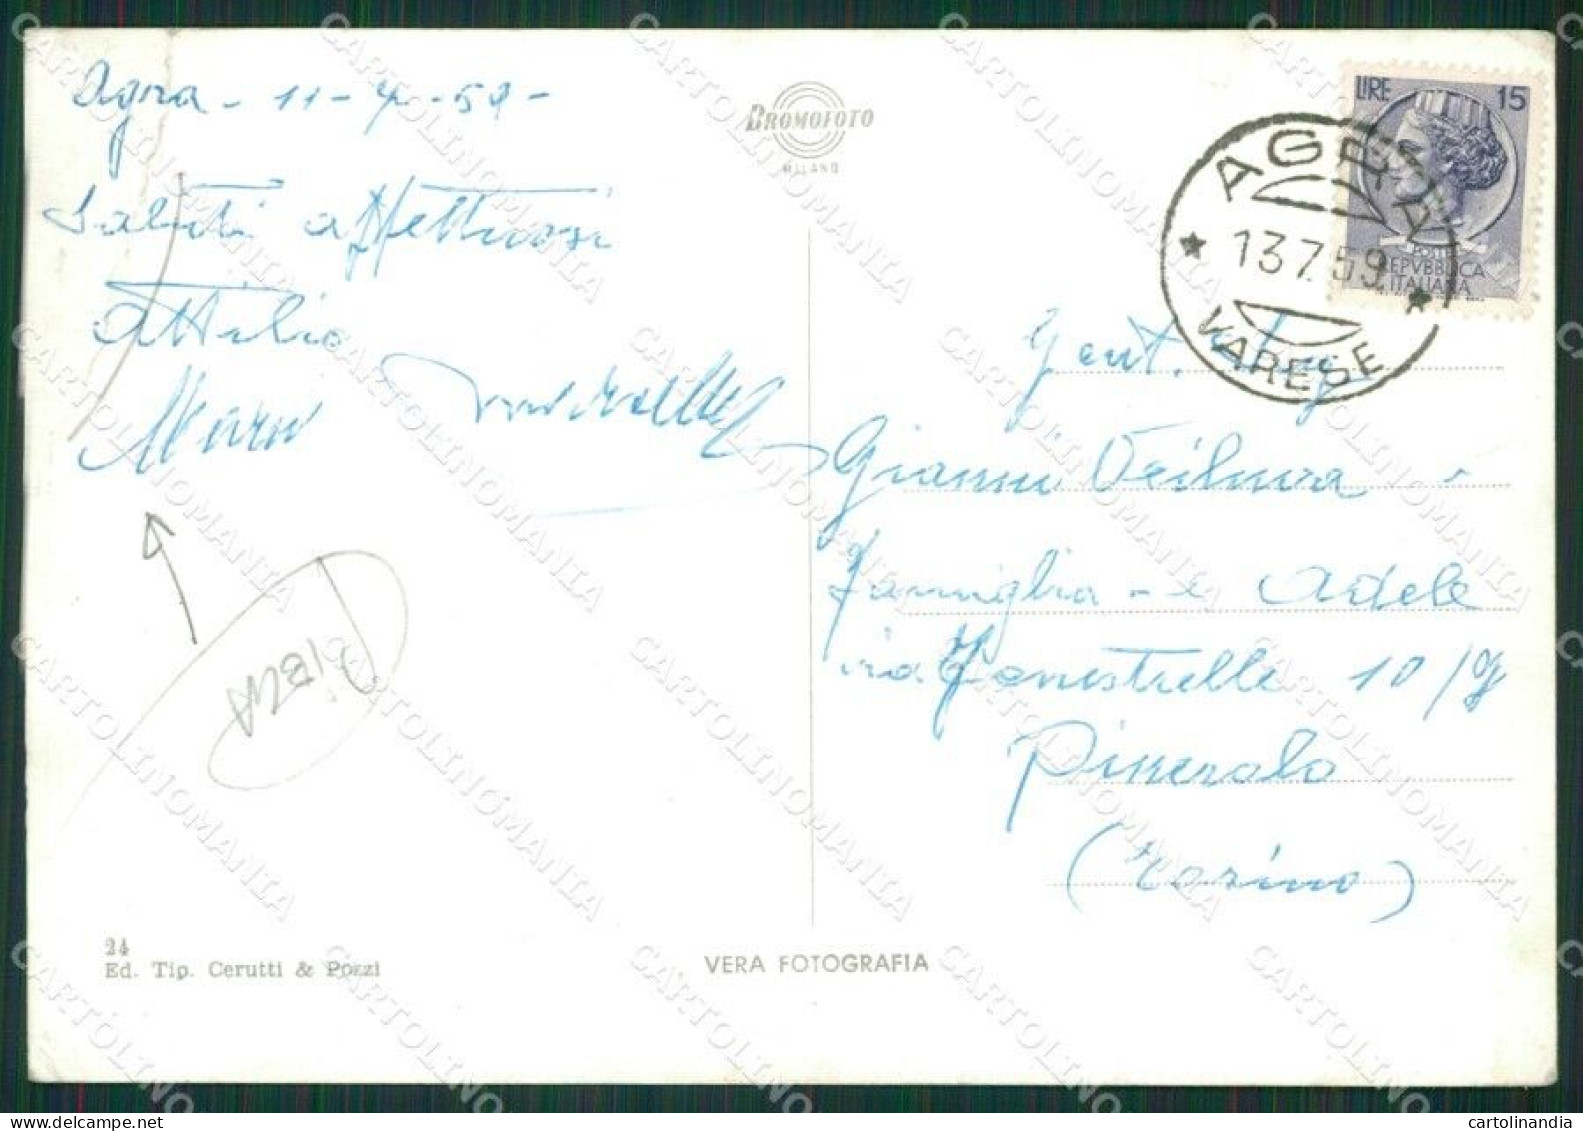 Agra - 11-7-59-
Saluti affettuosi
Attilio
BROMOFOTO
MILANO
LIRE 15
POSTE
REPVBBLICA
ITALIANA
AGRA
13.7.59
VARESE
Gent.
Gianni
Famiglia - e Adele
via Fenestrelle 10/g
Pinerolo
(Torino)
24
Ed. Tip. Cerutti & Pozzi
VERA FOTOGRAFIA
CARTOLINOMANIA
cartolinandia